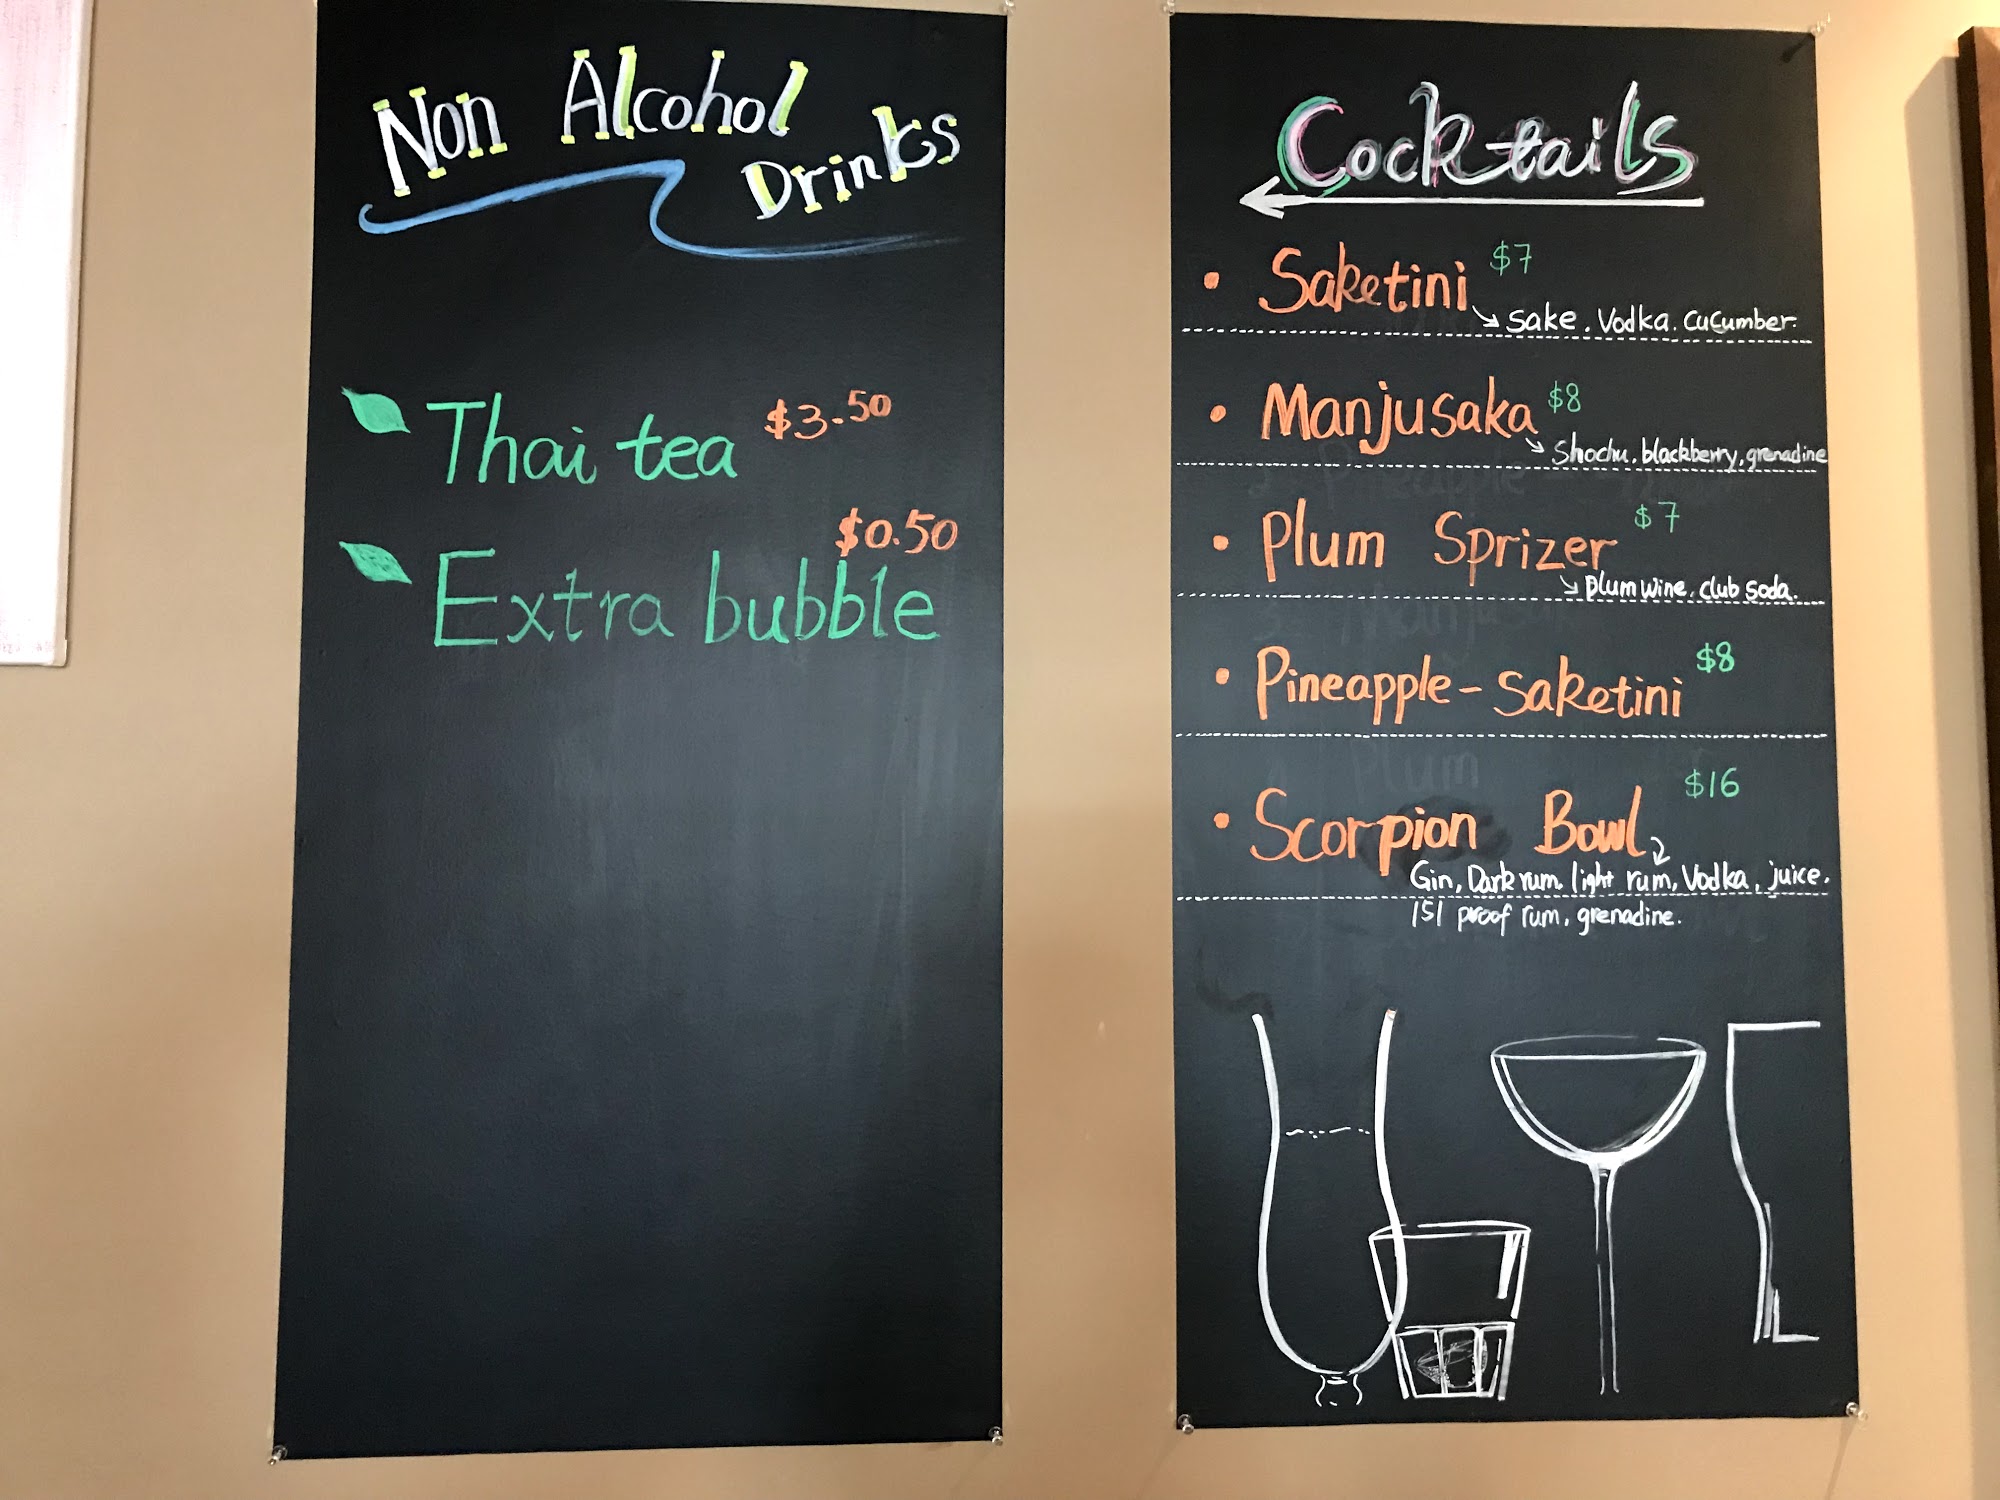 Non Alcohol
Drinks
Thai tea $3.50
$0.50
Extra bubble
Cocktails
• Saketini $7
Sake. Vodka. Cucumber.
• Manjusaka $8
Shochu. blackberry, grenadine
• Plum Sprizer $7
plum wine. club soda.
• Pineapple-Saketini $8
• Scorpion Bowl $16
Gin, Dark rum, light rum, Vodka, juice.
151 proof rum, grenadine.